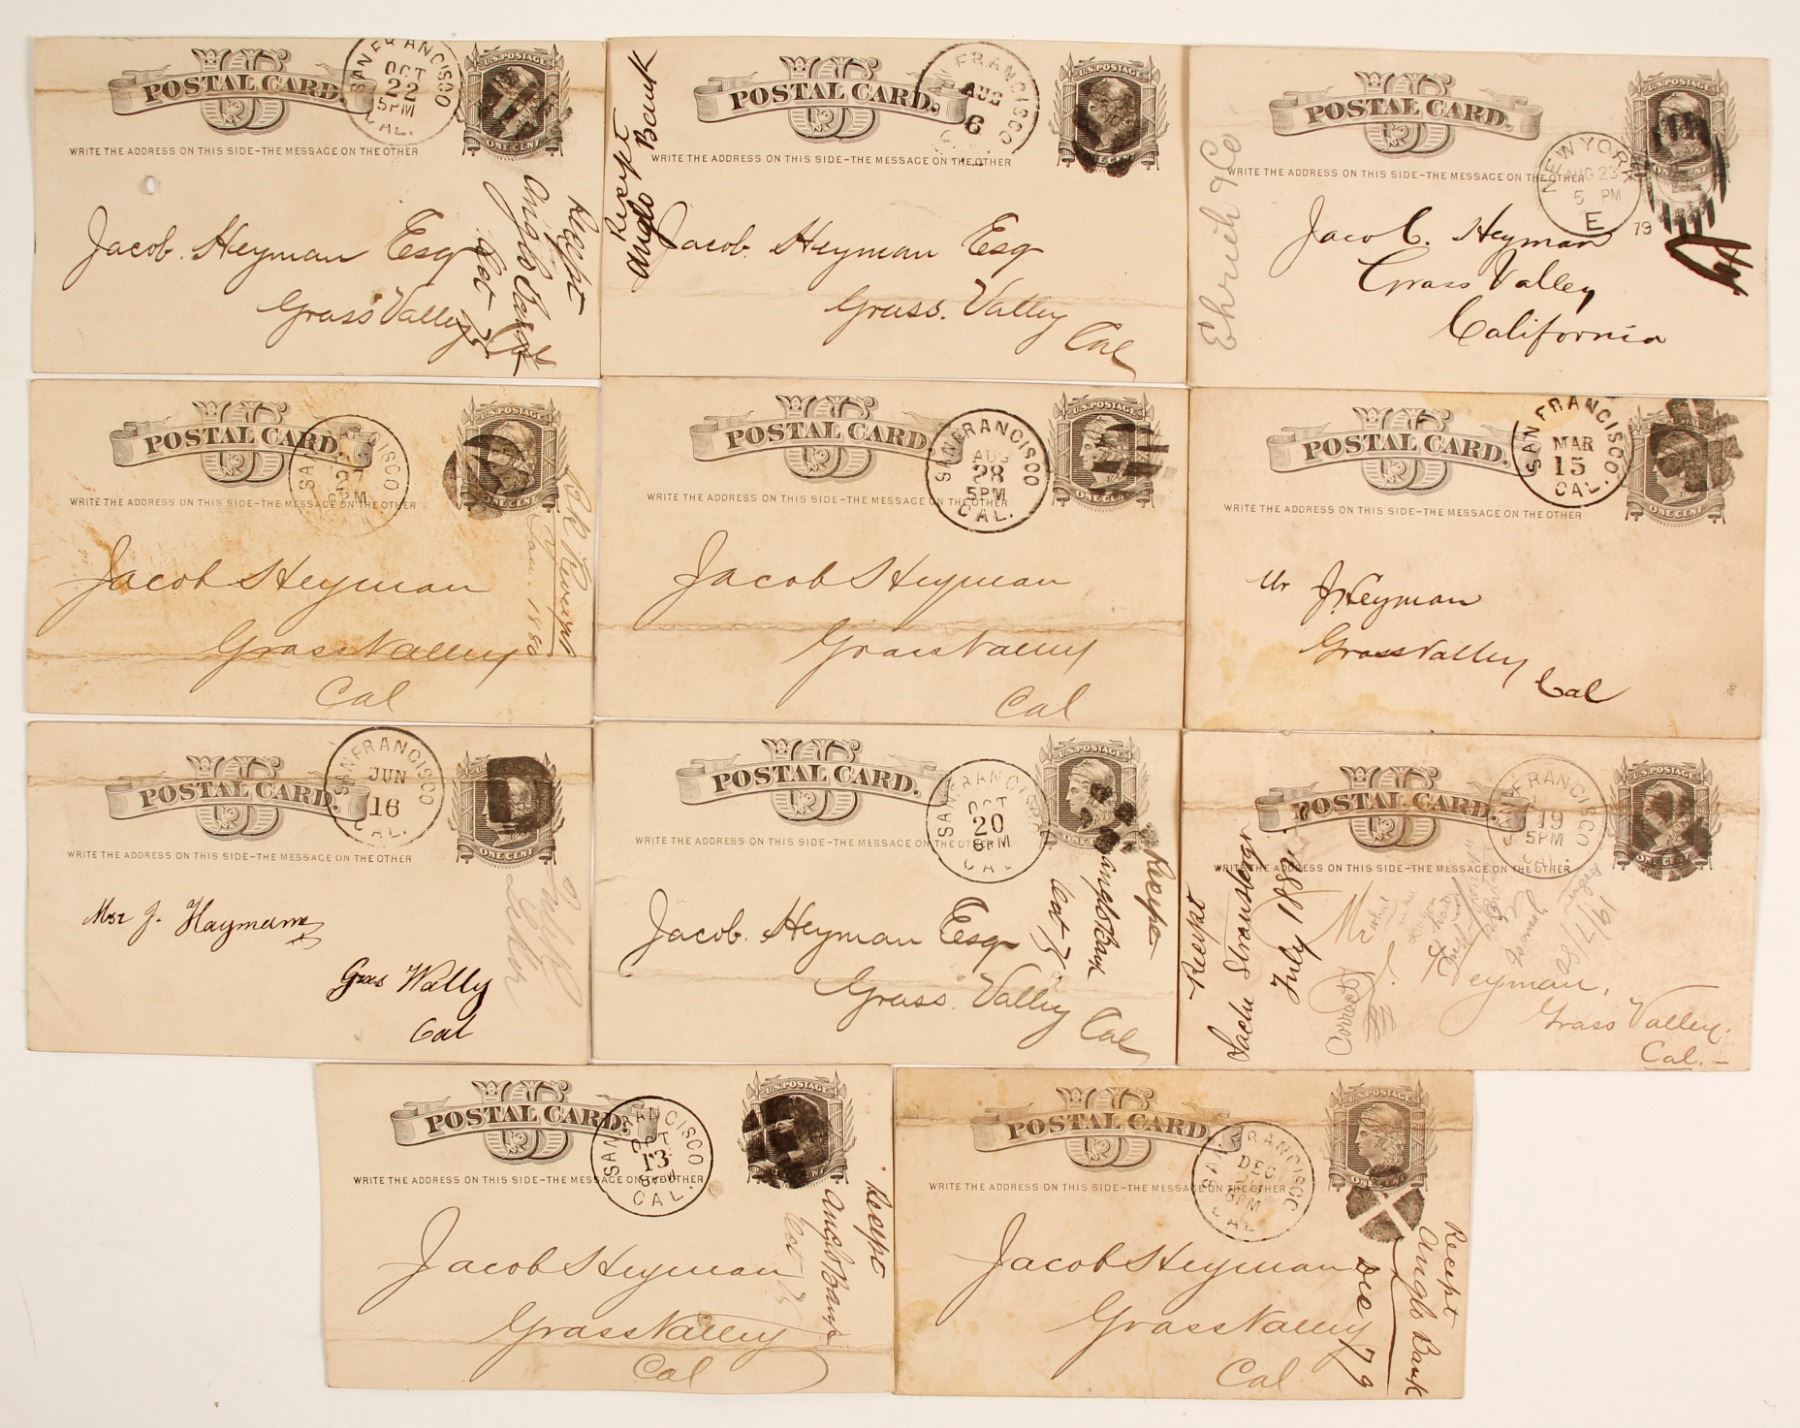 POSTAL CARD.
SAN FRANCISCO
OCT
22
5PM
CAL.
U.S. POSTAGE
ONE CENT
WRITE THE ADDRESS ON THIS SIDE-THE MESSAGE ON THE OTHER
Jacob. Heyman Esq
Grass Valley
Cal
Recipt
Anglo Bank
Oct 73
POSTAL CARD.
SAN FRANCISCO
AUG
6
U.S. POSTAGE
ONE CENT
WRITE THE ADDRESS ON THIS SIDE-THE MESSAGE ON THE OTHER
Recipt
Anglo Bank
Jacob. Heyman Esq
Grass. Valley
Cal
POSTAL CARD.
U.S. POSTAGE
ONE CENT
WRITE THE ADDRESS ON THIS SIDE-THE MESSAGE ON THE OTHER
NEW YORK
AUG 23
5 PM
E
79
Ehrich & Co
Jacob. Heyman
Grass Valley
California
POSTAL CARD.
SAN FRANCISCO
U.S. POSTAGE
ONE CENT
WRITE THE ADDRESS ON THIS SIDE-THE MESSAGE ON THE OTHER
Jacob Heyman
Grass Valley
Cal
Recipt
Jan. 1880
POSTAL CARD.
SAN FRANCISCO
AUG
28
5PM
CAL.
U.S. POSTAGE
ONE CENT
WRITE THE ADDRESS ON THIS SIDE-THE MESSAGE ON THE OTHER
Jacob Heyman
Grass Valley
Cal
POSTAL CARD.
SAN FRANCISCO
MAR
15
CAL.
ONE CENT
WRITE THE ADDRESS ON THIS SIDE-THE MESSAGE ON THE OTHER
Mr J. Heyman
Grass Valley
Cal
POSTAL CARD.
SAN FRANCISCO
JUN
16
CAL.
U.S. POSTAGE
ONE CENT
WRITE THE ADDRESS ON THIS SIDE-THE MESSAGE ON THE OTHER
Msr J. Haymann
Gras Wally
Cal
POSTAL CARD.
SAN FRANCISCO
OCT
20
8PM
CAL
U.S. POSTAGE
WRITE THE ADDRESS ON THIS SIDE-THE MESSAGE ON THE OTHER
Jacob. Heyman Esq
Grass. Valley
Cal
Recipt
Anglo Bank
POSTAL CARD.
SAN FRANCISCO
19
5PM
CAL.
U.S. POSTAGE
ONE CENT
WRITE THE ADDRESS ON THIS SIDE-THE MESSAGE ON THE OTHER
Recipt
Sachs Strausberger
July 188
Correct
Mr J. Heyman,
Grass Valley.
Cal.-
POSTAL CARD.
SAN FRANCISCO
OCT
13
8PM
CAL.
U.S. POSTAGE
ONE CENT
WRITE THE ADDRESS ON THIS SIDE-THE MESSAGE ON THE OTHER
Jacob Heyman
Grass Valley
Cal
Recipt
Anglo Bank
POSTAL CARD.
SAN FRANCISCO
DEC
CAL
U.S. POSTAGE
ONE CENT
WRITE THE ADDRESS ON THIS SIDE-THE MESSAGE ON THE OTHER
Jacob Heyman
Grass Valley
Cal
Recipt
Anglo Bank
Dec 79